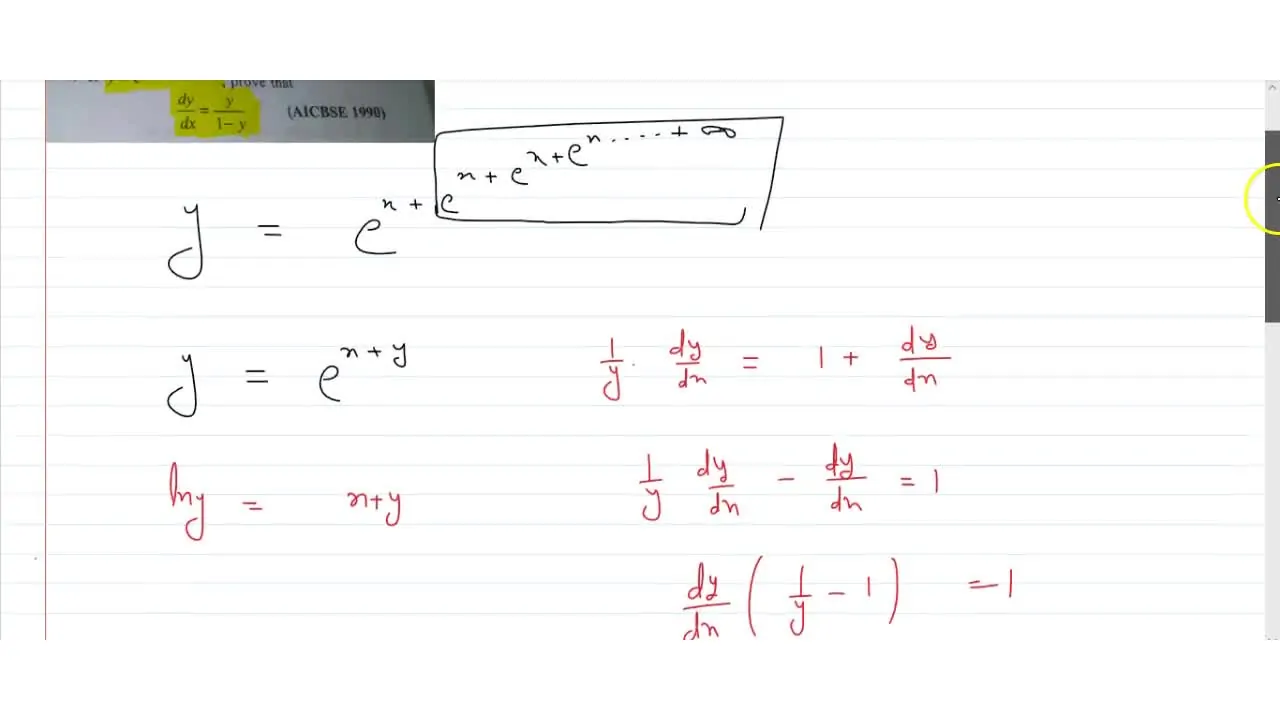 , prove that
dy/dx = y/(1 − y) (AICBSE 1990)
y = e^(x + e^(x + e^(x + e^(x ..... + ∞))))
y = e^(x + y)
ln y = x + y
1/y · dy/dx = 1 + dy/dx
1/y dy/dx − dy/dx = 1
dy/dx (1/y − 1) = 1